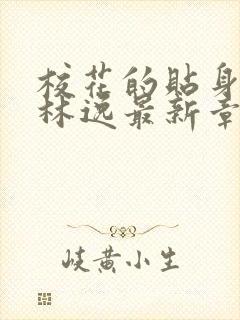 校花的贴身
林逸最新章
岐黄小生